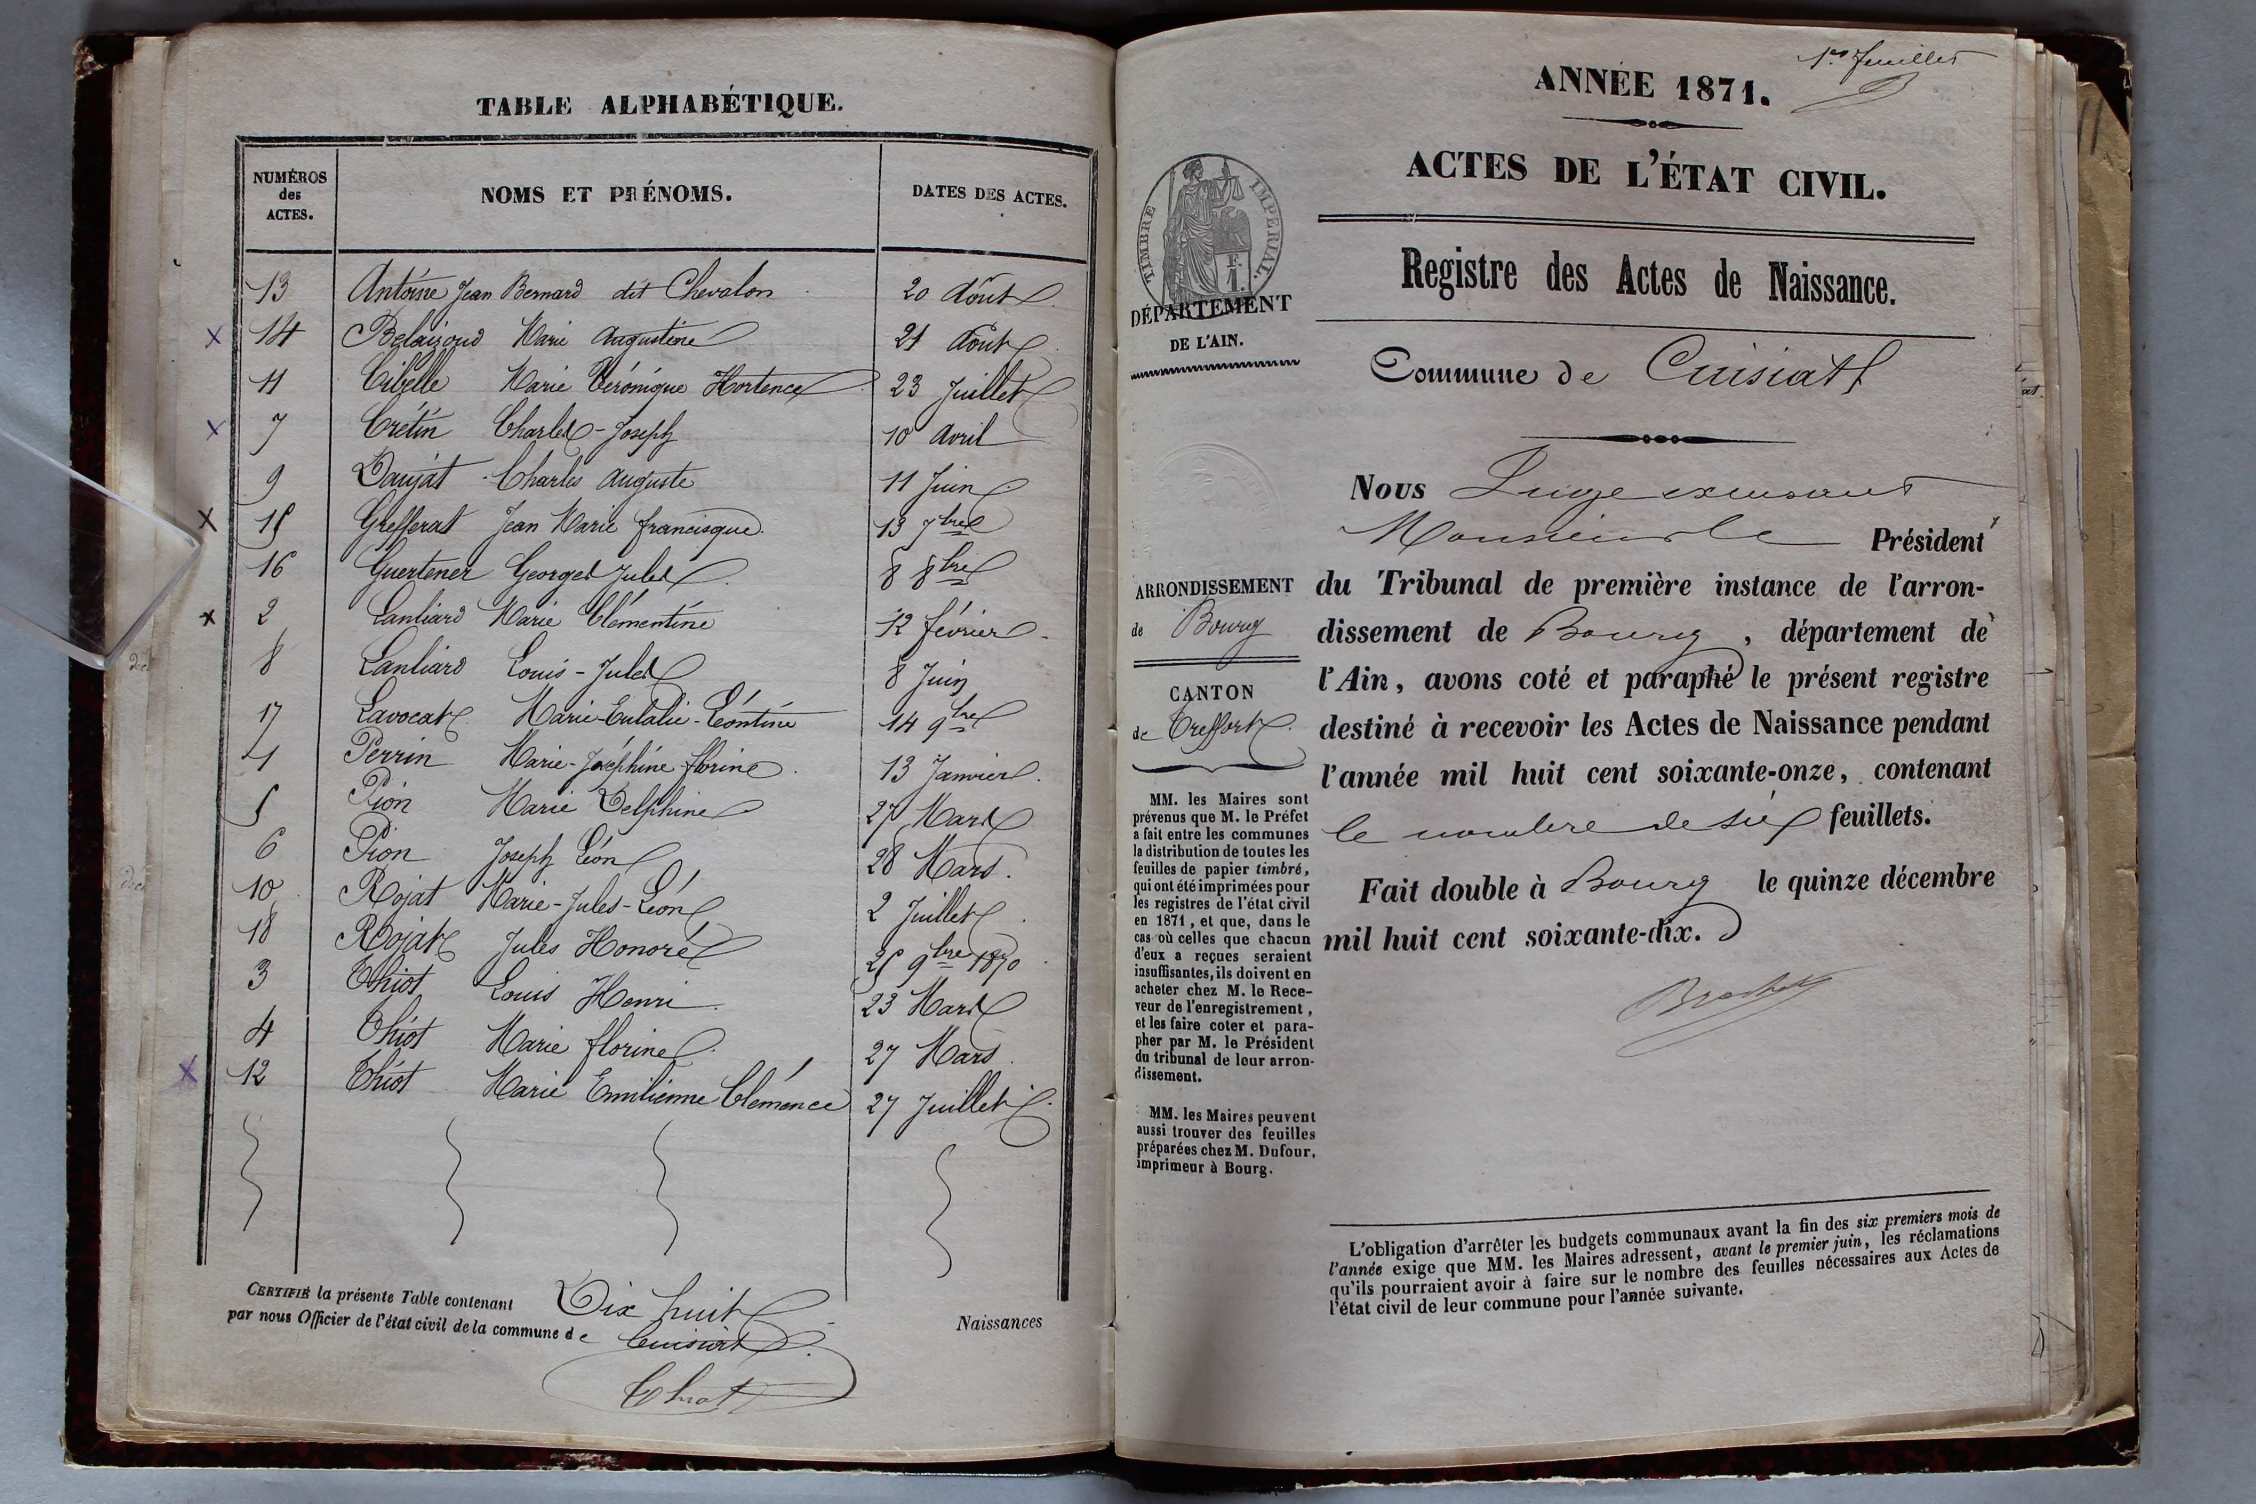 TABLE ALPHABÉTIQUE.
NUMÉROS des ACTES. NOMS ET PRÉNOMS. DATES DES ACTES.
13 Antoine Jean Bernard dit Chevalon 20 Août
14 Belaizoud Marie Augustine 21 Août
11 Cibelle Marie Véronique Hortence 23 Juillet
7 Crétin Charles-Joseph 10 Avril
9 Daujat Charles Auguste 11 Juin
15 Grefferat Jean Marie francisque 13 7bre
16 Guertener Georges Jules 8 8bre
2 Lanliard Marie Clémentine 12 février
8 Lanliard Louis-Jules 8 Juin
17 Lavocat Marie-Eulalie-Léontine 14 9bre
1 Perrin Marie-Joséphine florine 13 Janvier
5 Pion Marie Delphine 27 Mars
6 Pion Joseph Léon 28 Mars
10 Rojat Marie-Jules-Léon 2 Juillet
18 Rojat Jules Honoré 25 9bre 1870
3 Thiot Louis Henri 23 Mars
4 Thiot Marie florine 27 Mars
12 Thiot Marie Emilienne Clémence 27 Juillet
CERTIFIÉ la présente Table contenant Dix huit Naissances
par nous Officier de l'état civil de la commune de Cuisiat
Thiot
1er feuillet
ANNÉE 1871.
ACTES DE L'ÉTAT CIVIL.
Registre des Actes de Naissance.
Commune de Cuisiat
TIMBRE IMPÉRIAL
F.
1.
DÉPARTEMENT
DE L'AIN.
ARRONDISSEMENT
de Bourg
CANTON
de Treffort
MM. les Maires sont
prévenus que M. le Préfet
a fait entre les communes
la distribution de toutes les
feuilles de papier timbré,
qui ont été imprimées pour
les registres de l'état civil
en 1871, et que, dans le
cas où celles que chacun
d'eux a reçues seraient
insuffisantes, ils doivent en
acheter chez M. le Rece-
veur de l'enregistrement,
et les faire coter et para-
pher par M. le Président
du tribunal de leur arron-
dissement.
MM. les Maires peuvent
aussi trouver des feuilles
préparées chez M. Dufour,
imprimeur à Bourg.
Nous Juge excusant
Monsieur le Président
du Tribunal de première instance de l'arron-
dissement de Bourg, département de
l'Ain, avons coté et paraphé le présent registre
destiné à recevoir les Actes de Naissance pendant
l'année mil huit cent soixante-onze, contenant
le nombre de six feuillets.
Fait double à Bourg le quinze décembre
mil huit cent soixante-dix.
L'obligation d'arrêter les budgets communaux avant la fin des six premiers mois de
l'année exige que MM. les Maires adressent, avant le premier juin, les réclamations
qu'ils pourraient avoir à faire sur le nombre des feuilles nécessaires aux Actes de
l'état civil de leur commune pour l'année suivante.